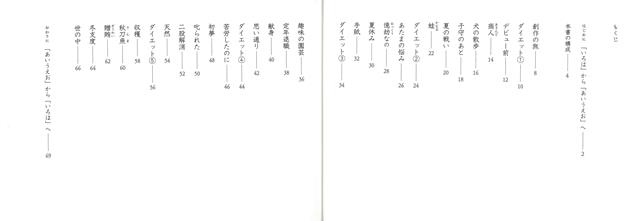 もくじ
はじめに 「いろは」から「あいうえお」へ——2
本書の構成——4
創作の旅——8
ダイエット①——10
デビュー前——12
商人——14
犬の散歩——16
子守のあと——18
夏の戦い——20
蛙——22
ダイエット②——24
あたまの悩み——26
億劫なの——28
夏休み——30
手紙——32
ダイエット③——34
趣味の園芸——36
定年退職——38
献身——40
思い通り——42
ダイエット④——44
苦労したのに——46
初夢——48
叱られた——50
二股解消——52
天然——54
ダイエット⑤——56
収穫——58
秋刀魚——60
贈賄——62
冬支度——64
世の中——66
おわりに 「あいうえお」から「いろは」へ——69